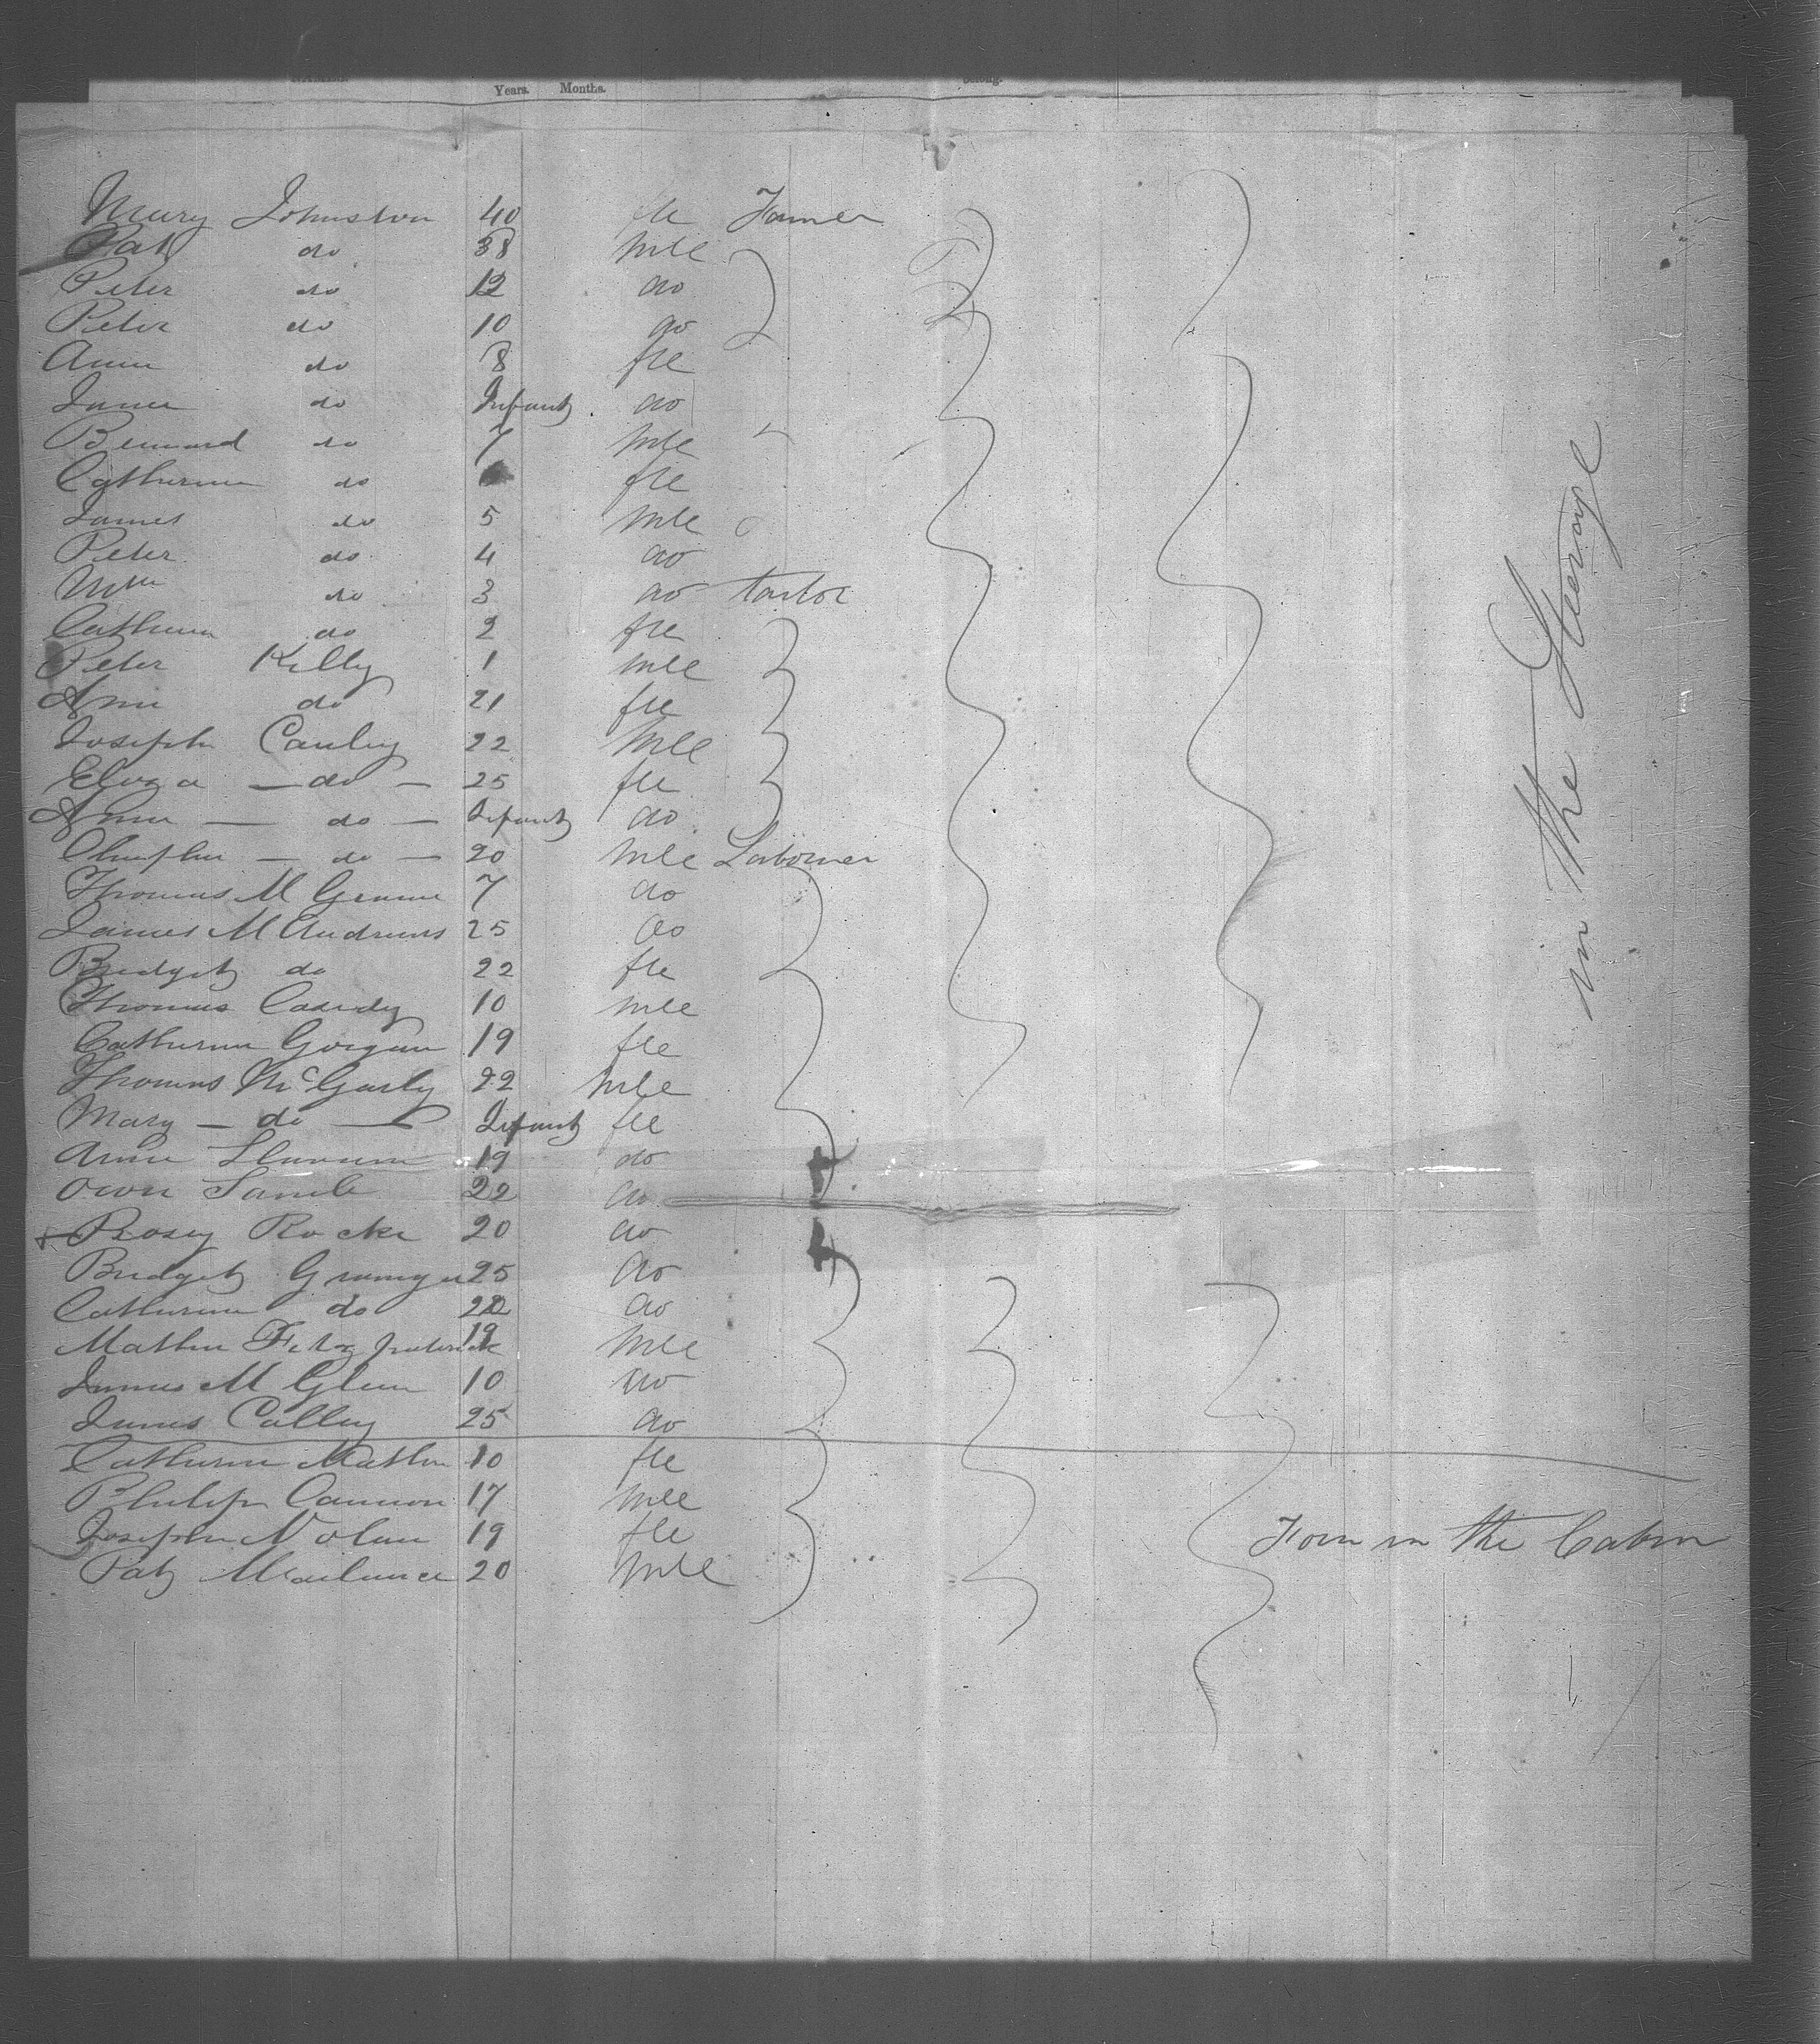 Years. Months.
Mary Johnston 40 fle Farmer
Pat do 38 mle
Peter do 12 do
Peter do 10 do
Ann do 8 fle
do Infant do
Bernard do 7 mle
Catherine do fle
James do 5 mle
Peter do 4 do
Wm do 3 do tailor
Catherine do 2 fle
Peter Kelly 1 mle
Ann do 21 fle
Joseph Cauley 22 mle
Eliza — do — 25 fle
Ann — do — Infant do
— do — 20 mle Laborer
Thomas M 7 do
James M Andrews 25 do
Bridget do 22 fle
Thomas Casidy 10 mle
Catherine Gorgan 19 fle
Thomas McGarty 22 mle
Mary — do — Infant fle
Anne 19 do
Owen 22 do
Rosey Rocke 20 do
Bridget 25 do
Catherine do do
Mathew Fitzpatrick 19 mle
James M Glenn 10 do
James Colley 25 do
Catherine Mathew 10 fle
Philip Cannon 17 mle
Joseph Nolan 19 fle
Pat 20 mle
in the Steerage
Four in the Cabin